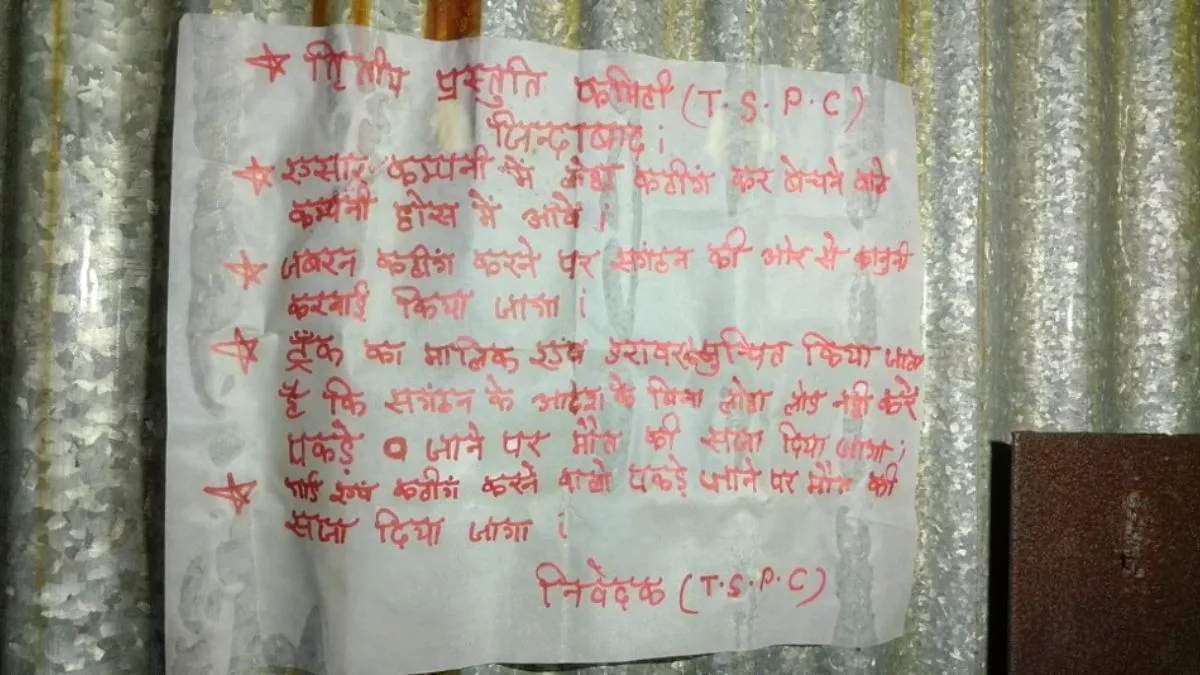 ☆ तृतीय प्रस्तुति कमिटी (T.S.P.C)
जिन्दाबाद।
☆ एस्सार कम्पनी में लोहा कटींग कर बेचने वाले
कम्पनी होस में आवे।
☆ जबरन कटींग करने पर सगंठन की ओर से कानुनी
करवाई किया जागा।
☆ ट्रैक का मालिक एवंम डरावर सुचित किया जाता
है कि सगंठन के आदेश के बिना लोहा लोड नही करें
पकड़े जाने पर मौत की सजा दिया जागा।
☆ गार्ड एवंम कटींग करने वालो पकड़े जाने पर मौत की
सजा दिया जागा।
निवेदक (T.S.P.C)